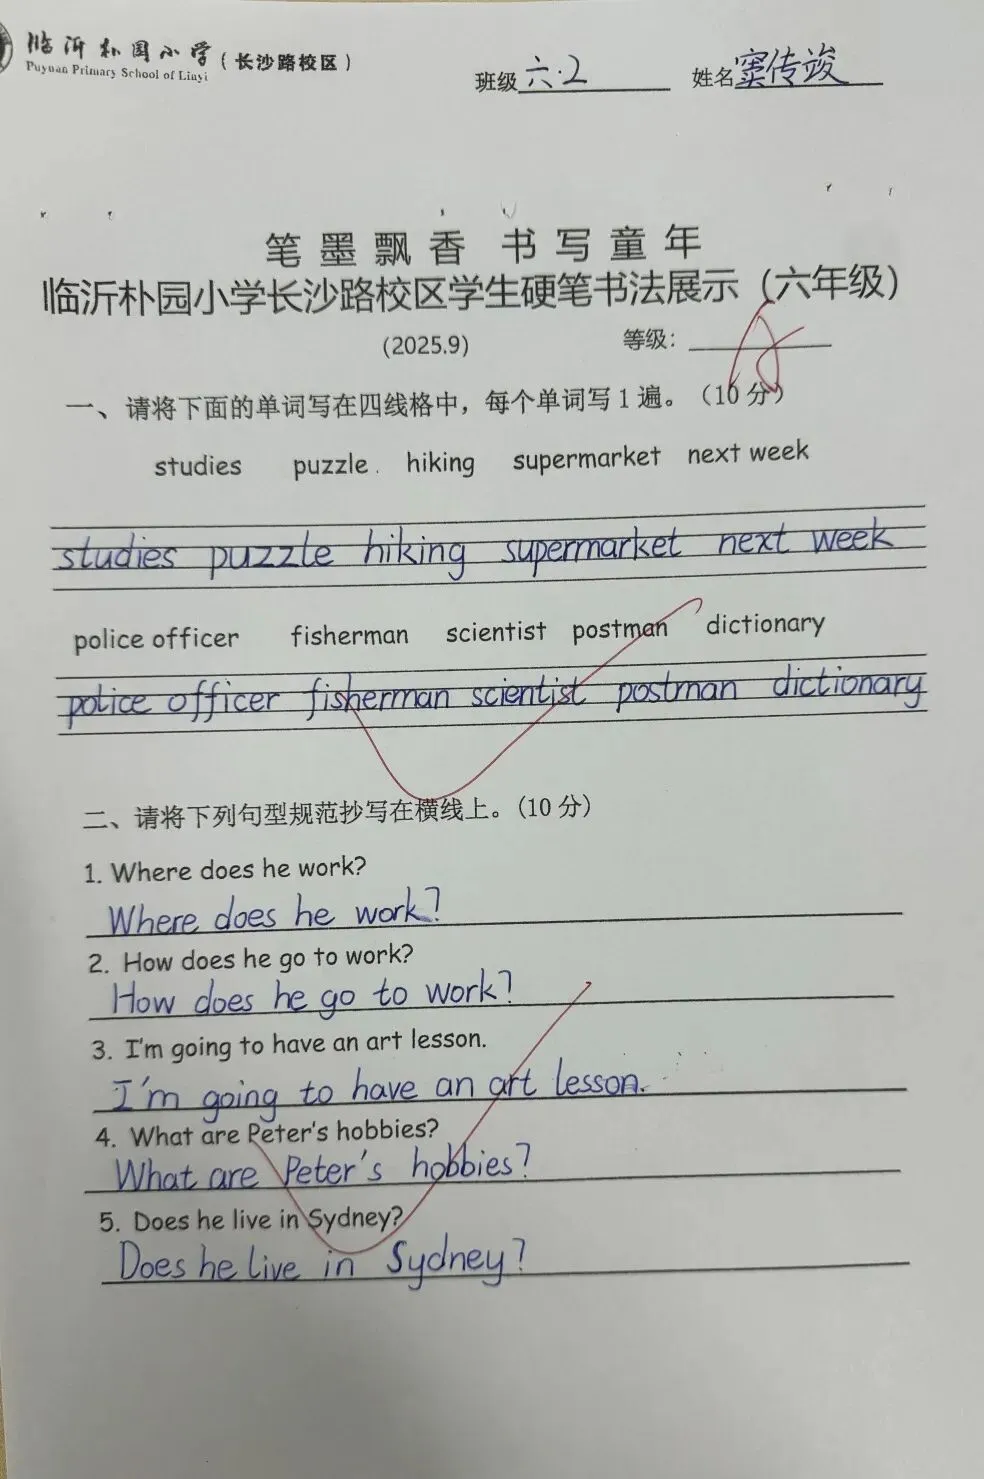 临沂朴园小学(长沙路校区)
Puyuan Primary School of Linyi
班级 六.2 姓名 窦传竣
笔墨飘香 书写童年
临沂朴园小学长沙路校区学生硬笔书法展示(六年级)
(2025.9) 等级:
一、请将下面的单词写在四线格中,每个单词写1遍。(10分)
studies puzzle. hiking supermarket next week
studies puzzle hiking supermarket next week
police officer fisherman scientist postman dictionary
police officer fisherman scientist postman dictionary
二、请将下列句型规范抄写在横线上。(10分)
1. Where does he work?
Where does he work?
2. How does he go to work?
How does he go to work?
3. I'm going to have an art lesson.
I'm going to have an art lesson.
4. What are Peter's hobbies?
What are Peter's hobbies?
5. Does he live in Sydney?
Does he live in Sydney?